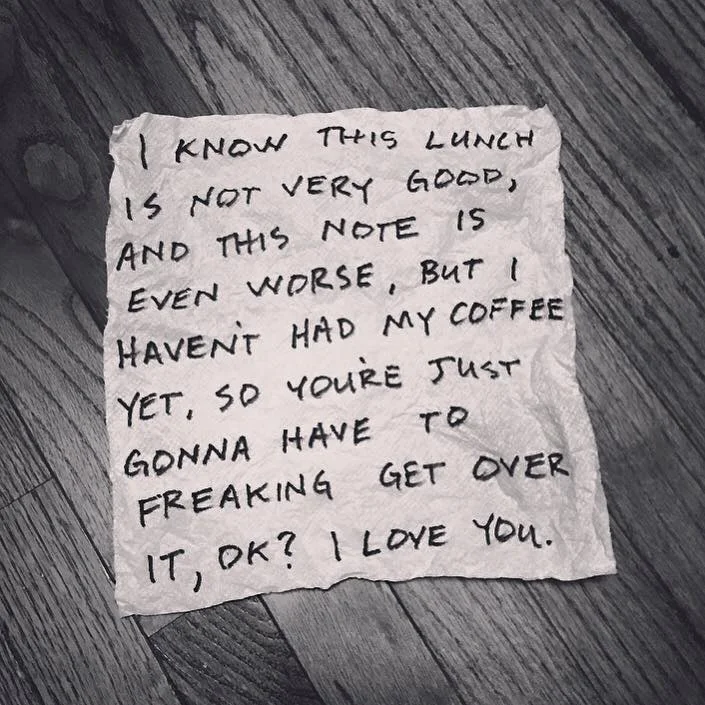 I KNOW THIS LUNCH
IS NOT VERY GOOD,
AND THIS NOTE IS
EVEN WORSE, BUT I
HAVEN'T HAD MY COFFEE
YET, SO YOU'RE JUST
GONNA HAVE TO
FREAKING GET OVER
IT, OK? I LOVE YOU.